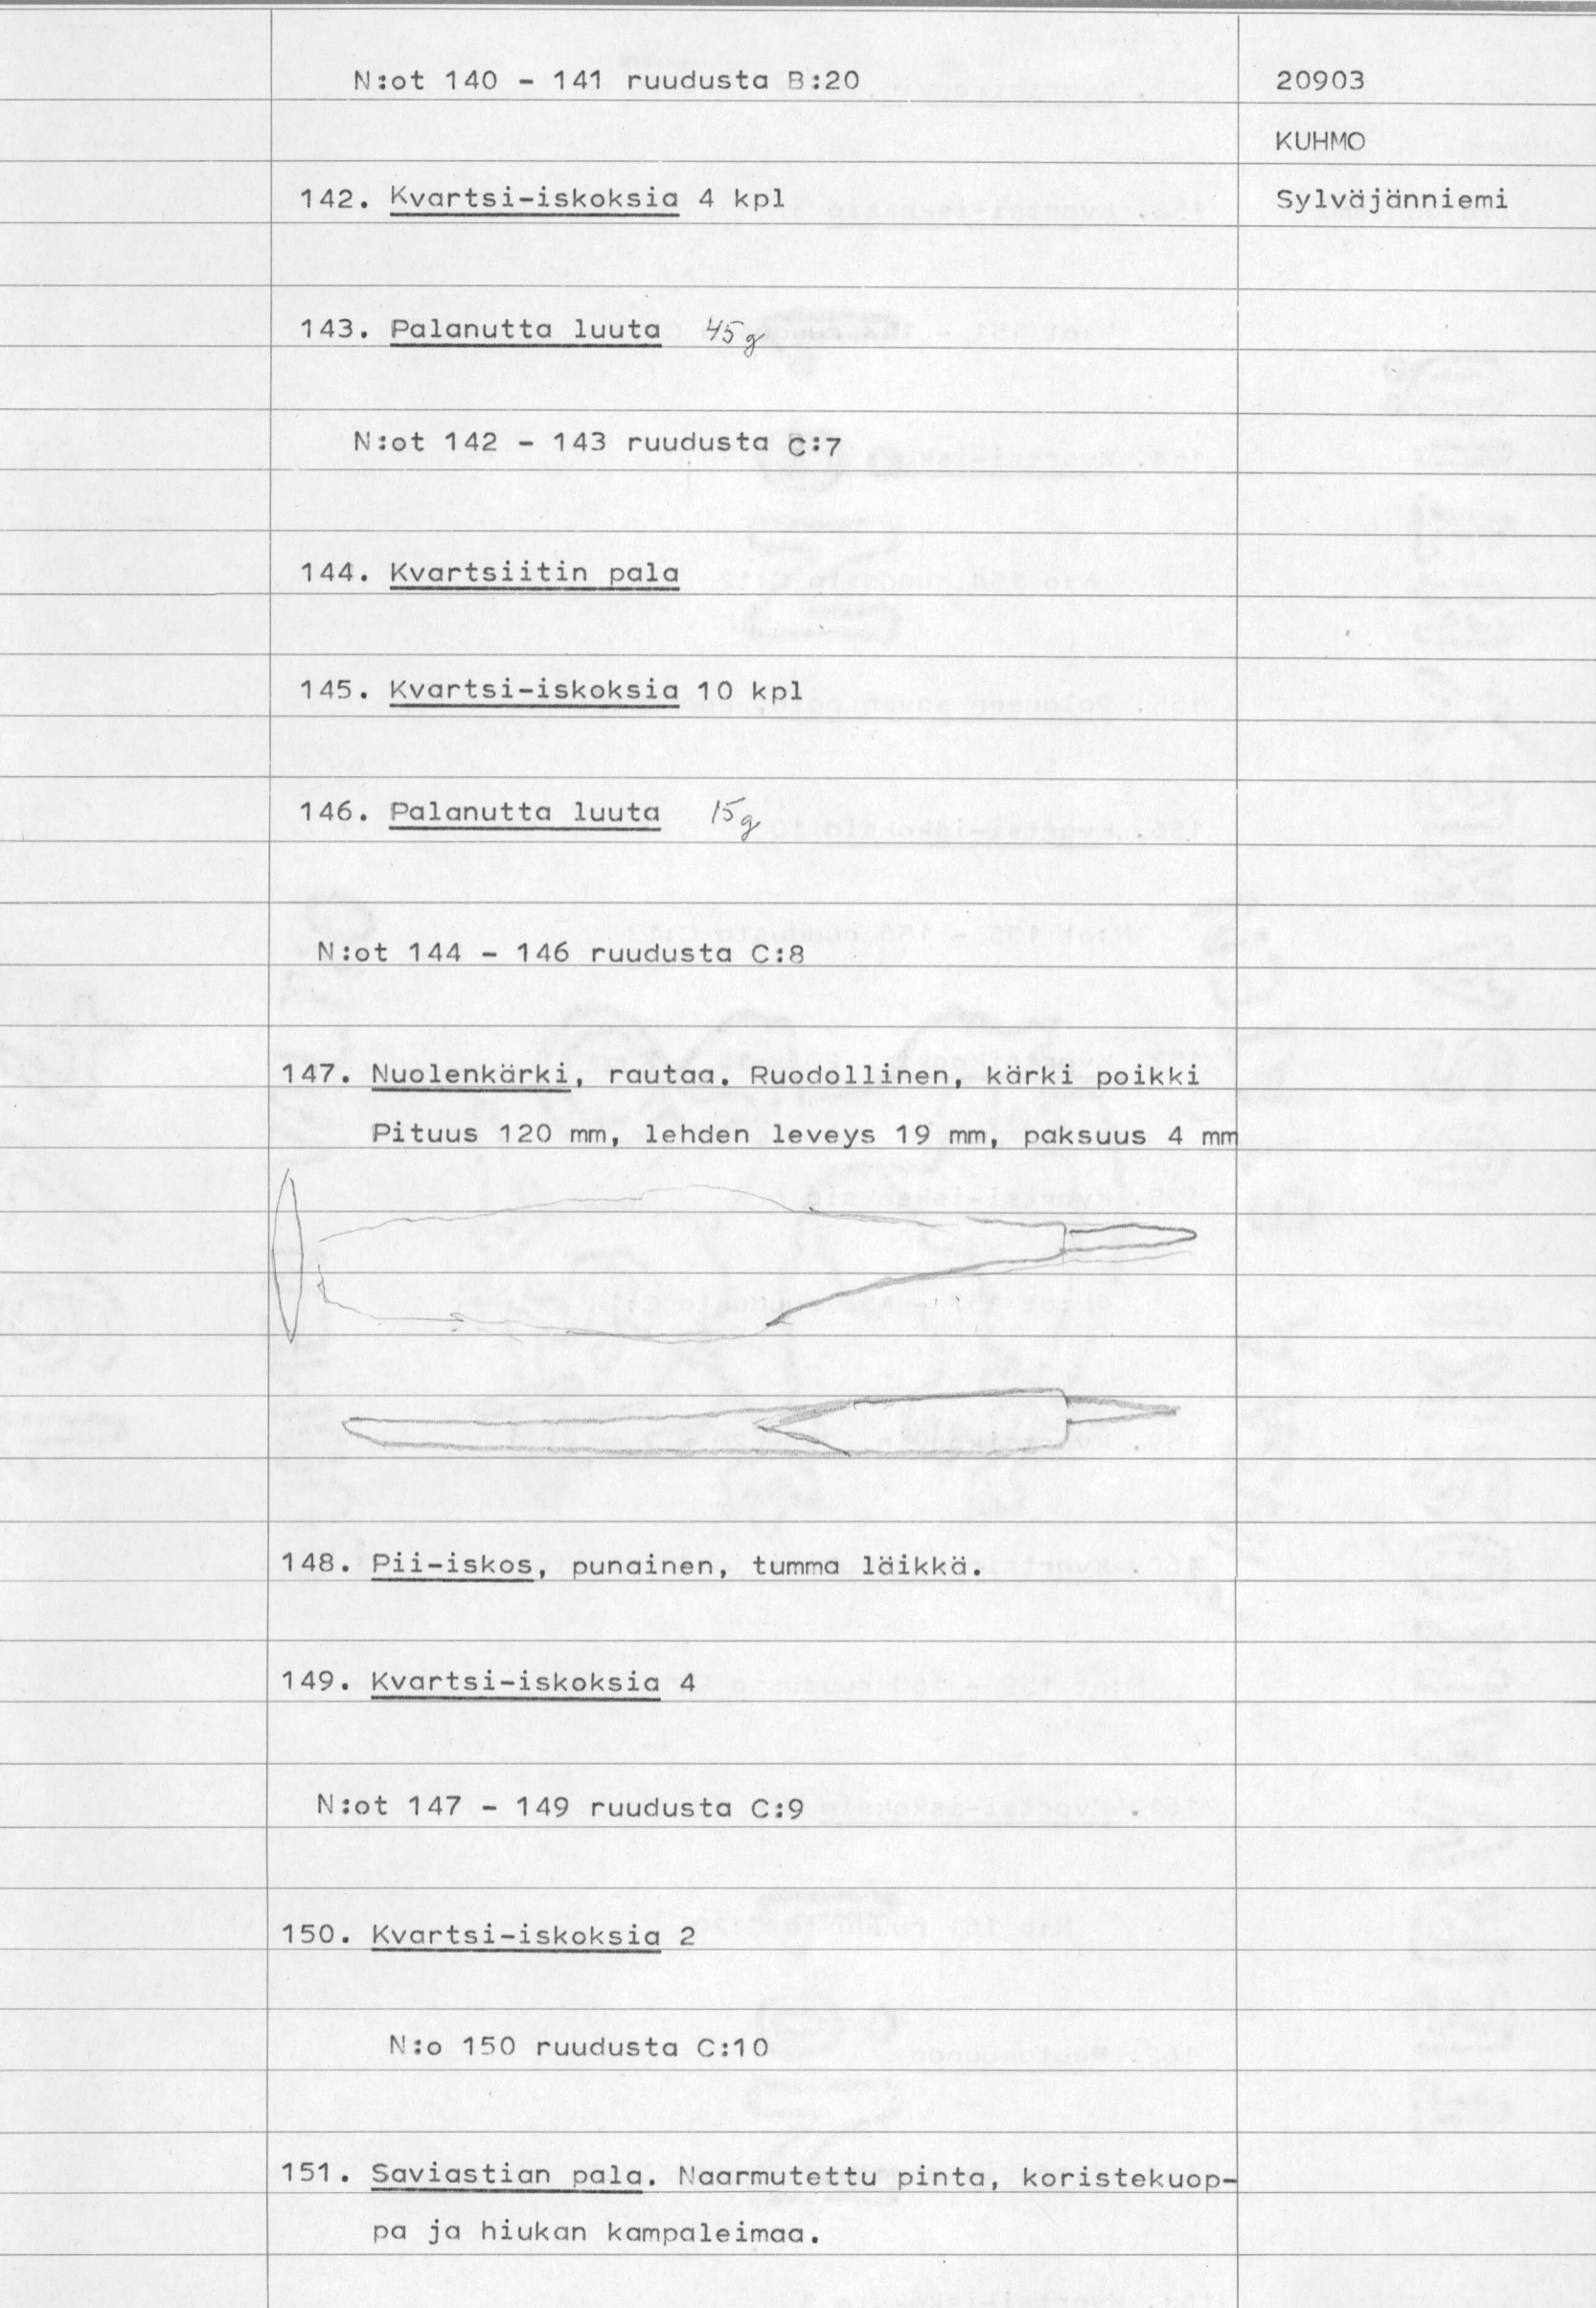 N:ot 140 - 141 ruudusta B:20
20903
KUHMO
142. Kvartsi-iskoksia 4 kpl
Sylväjänniemi
143. Palanutta luuta 45 g
N:ot 142 - 143 ruudusta C:7
144. Kvartsiitin pala
145. Kvartsi-iskoksia 10 kpl
146. Palanutta luuta 15 g
N:ot 144 - 146 ruudusta C:8
147. Nuolenkärki, rautaa. Ruodollinen, kärki poikki
Pituus 120 mm, lehden leveys 19 mm, paksuus 4 mm
148. Pii-iskos, punainen, tumma läikkä.
149. Kvartsi-iskoksia 4
N:ot 147 - 149 ruudusta C:9
150. Kvartsi-iskoksia 2
N:o 150 ruudusta C:10
151. Saviastian pala. Naarmutettu pinta, koristekuop-
pa ja hiukan kampaleimaa.